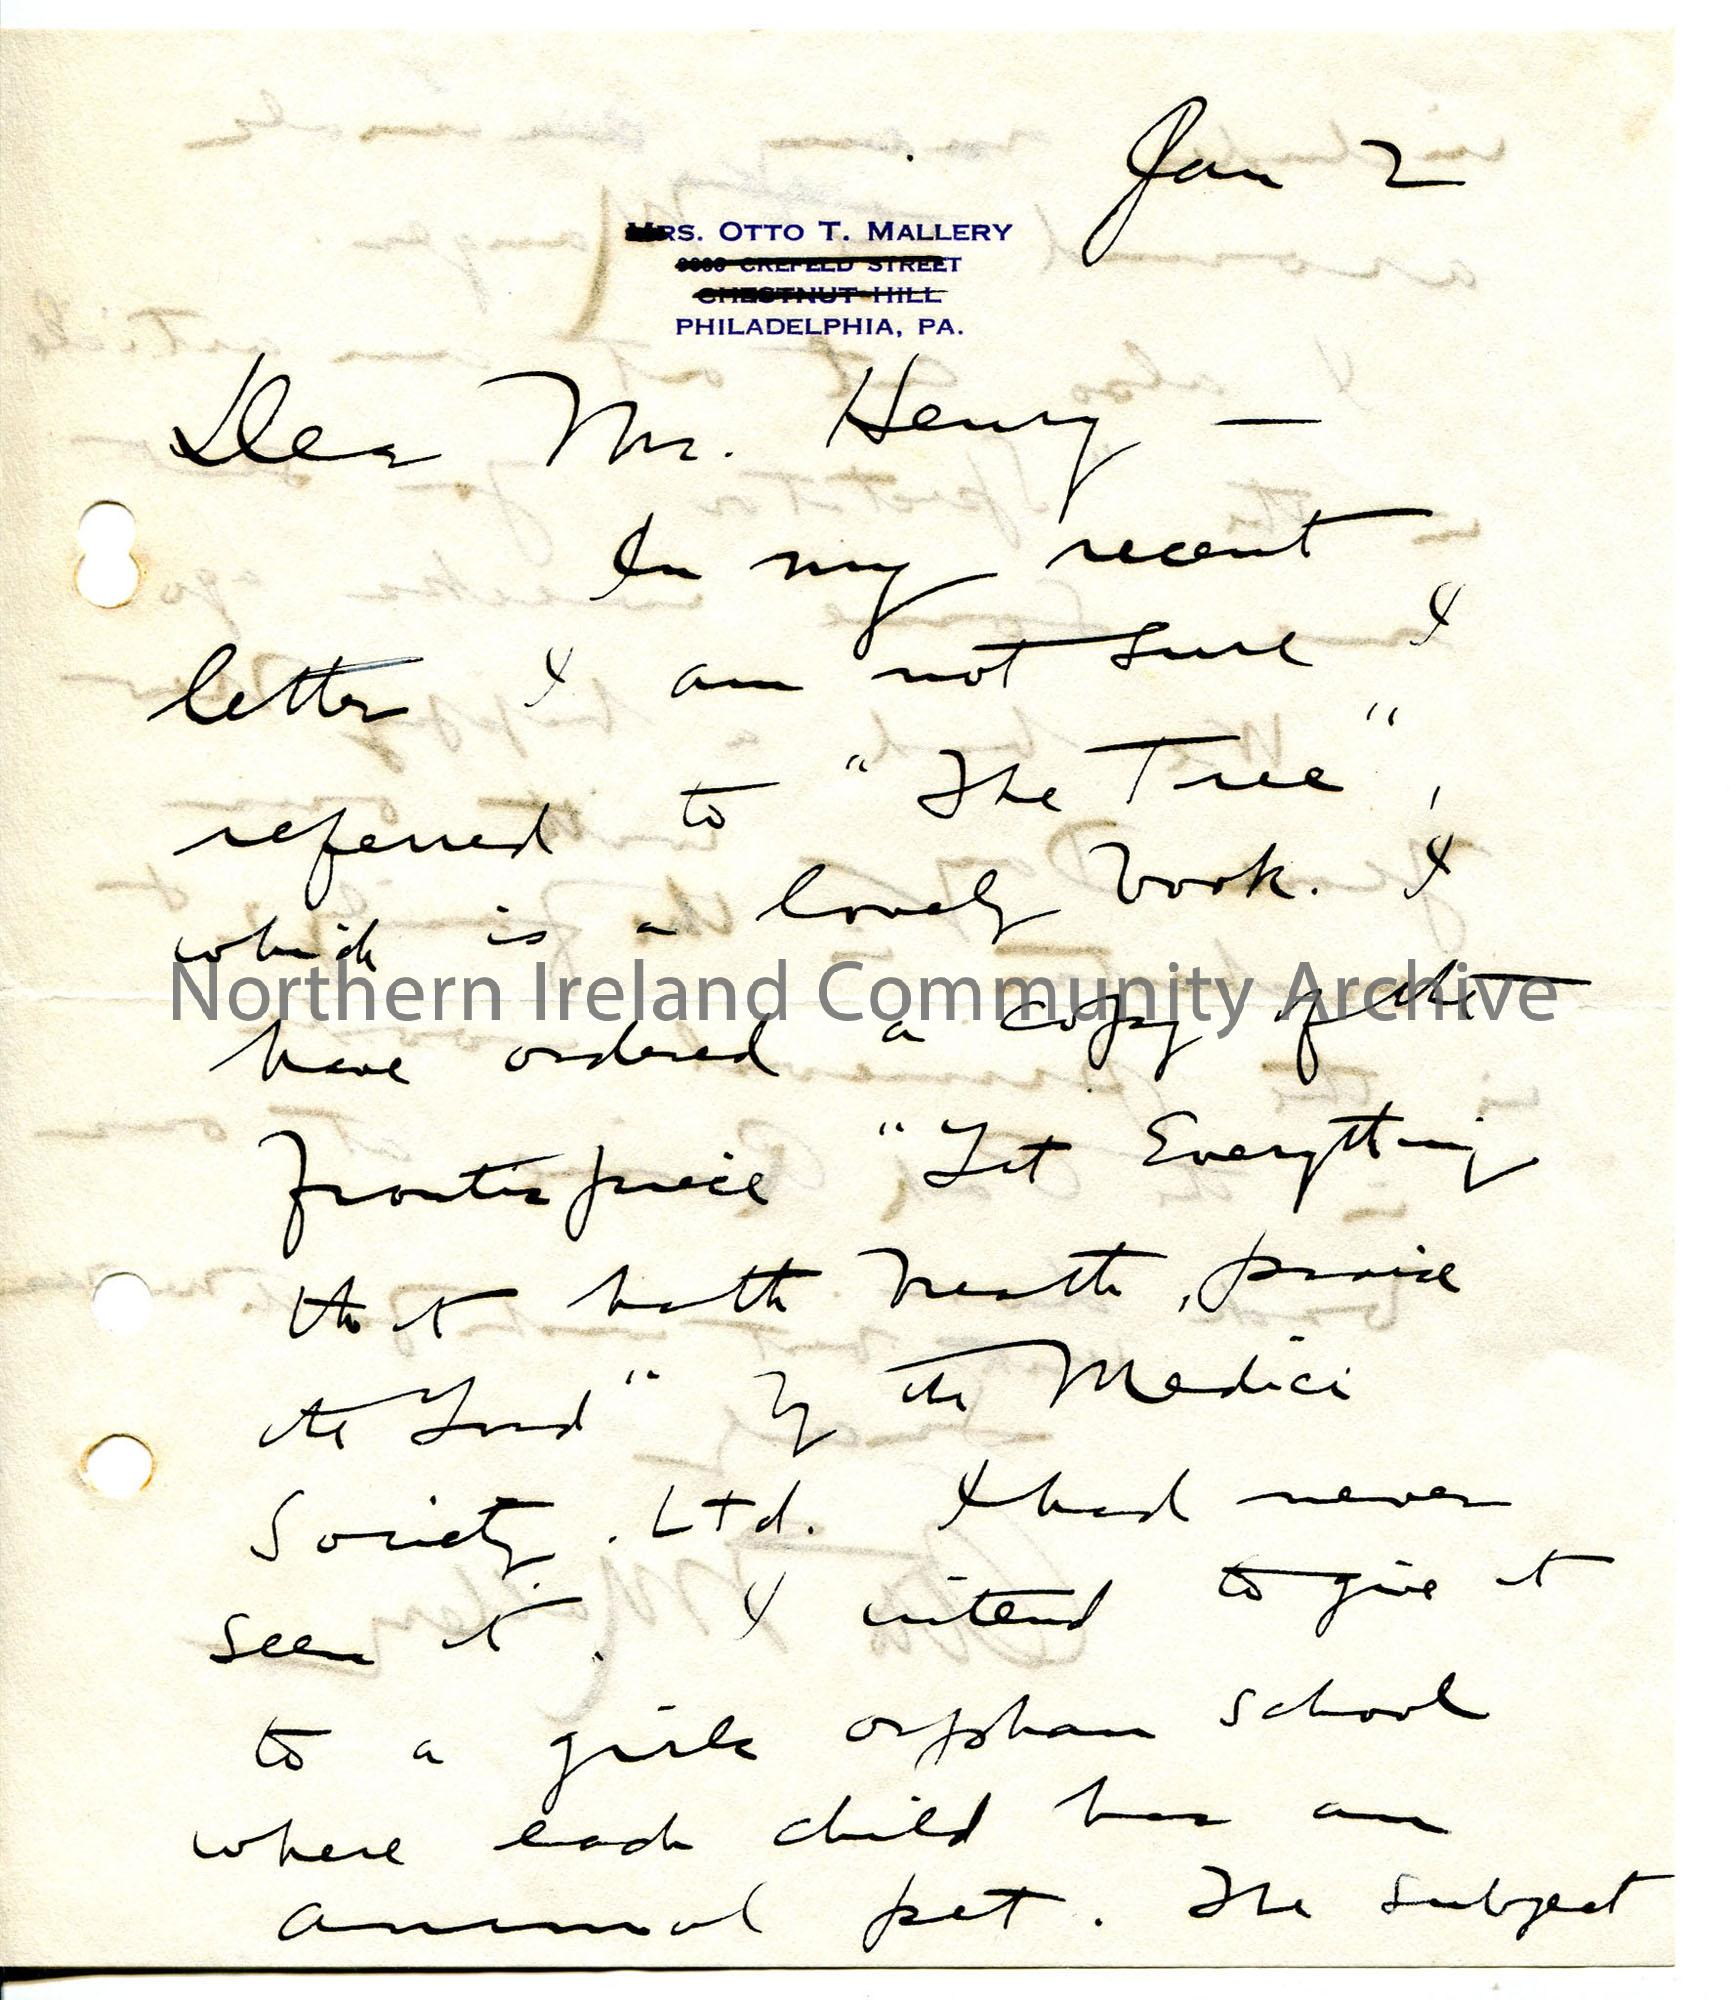 Jan 2
MRS. OTTO T. MALLERY
CREFELD STREET
CHESTNUT HILL
PHILADELPHIA, PA.
Dear Mr. Henry —
In my recent
letter I am not sure I
referred to "The Tree",
which is a lovely book. I
Northern Ireland Community Archive
have ordered a copy of the
Frontispiece "Let Everything
that hath breath, praise
the Lord" by the Medici
Society. Ltd. I had never
seen it. I intend to give it
to a girls orphan school
where each child has an
animal pet. The subject